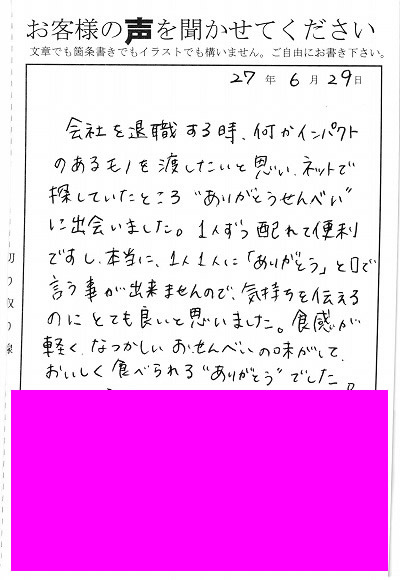 お客様の声を聞かせてください
文章でも箇条書きでもイラストでも構いません。ご自由にお書き下さい。
27年6月29日
会社を退職する時、何かインパクト
のあるモノを渡したいと思い、ネットで
探していたところ"ありがとうせんべい"
に出会いました。1人ずつ配れて便利
ですし、本当に、1人1人に「ありがとう」と口で
言う事が出来ませんので、気持ちを伝える
のにとても良いと思いました。食感が
軽く、なつかしいおせんべいの味がして、
おいしく食べられる"ありがとう"でした
切り取り線